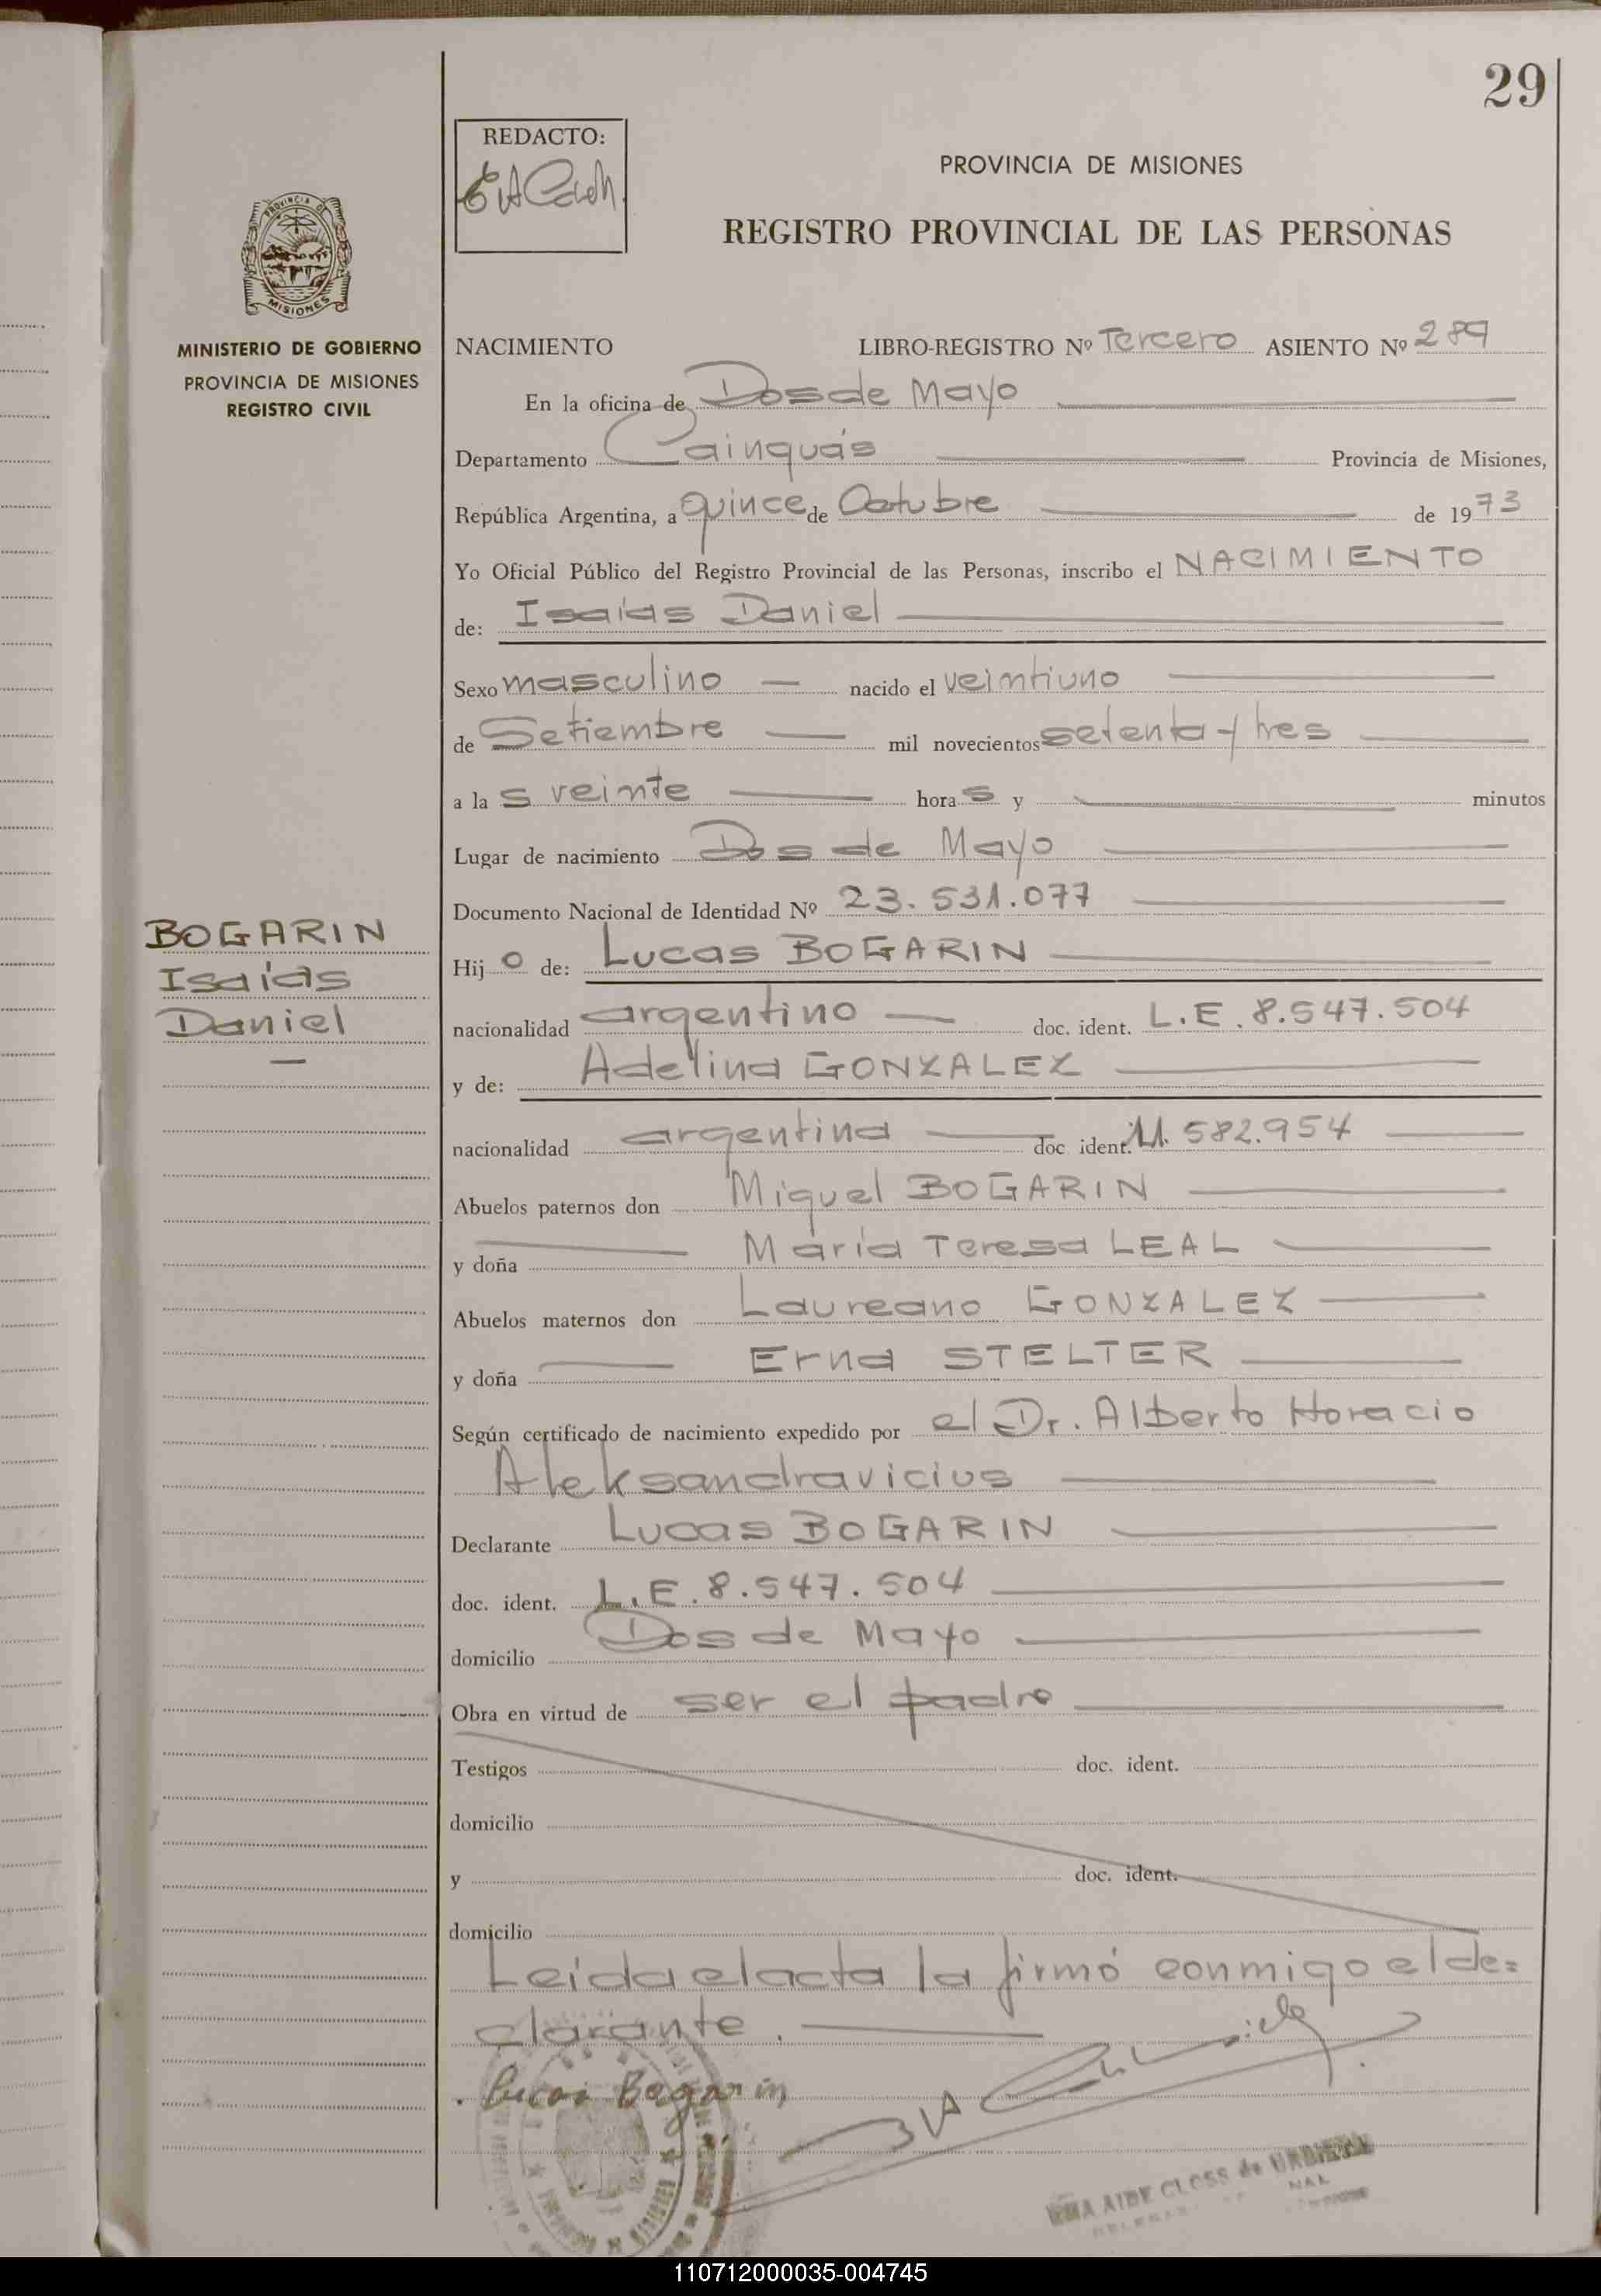 29
REDACTO:
PROVINCIA DE MISIONES
REGISTRO PROVINCIAL DE LAS PERSONAS
PROVINCIA DE
MISIONES
MINISTERIO DE GOBIERNO
PROVINCIA DE MISIONES
REGISTRO CIVIL
NACIMIENTO LIBRO-REGISTRO Nº Tercero ASIENTO Nº 289
En la oficina de Dos de Mayo
Departamento Cainguás Provincia de Misiones,
República Argentina, a quince de Octubre de 1973
Yo Oficial Público del Registro Provincial de las Personas, inscribo el NACIMIENTO
de: Isaías Daniel
Sexo masculino nacido el veintiuno
de Setiembre mil novecientos setenta y tres
a la s veinte hora s y minutos
Lugar de nacimiento Dos de Mayo
Documento Nacional de Identidad Nº 23.531.077
BOGARIN
Isaías
Daniel
Hij o de: Lucas BOGARIN
nacionalidad argentino doc. ident. L.E. 8.547.504
y de: Adelina GONZALEZ
nacionalidad argentina doc ident. 11.582.954
Abuelos paternos don Miguel BOGARIN
y doña María Teresa LEAL
Abuelos maternos don Laureano GONZALEZ
y doña Erna STELTER
Según certificado de nacimiento expedido por el Dr. Alberto Horacio
Aleksandravicius
Declarante Lucas BOGARIN
doc. ident. L.E. 8.547.504
domicilio Dos de Mayo
Obra en virtud de ser el padre
Testigos doc. ident.
domicilio
y doc. ident.
domicilio
Leída el acta la firmó conmigo el de=
clarante.
Lucas Bogarin
AIDE CLOSS de
110712000035-004745